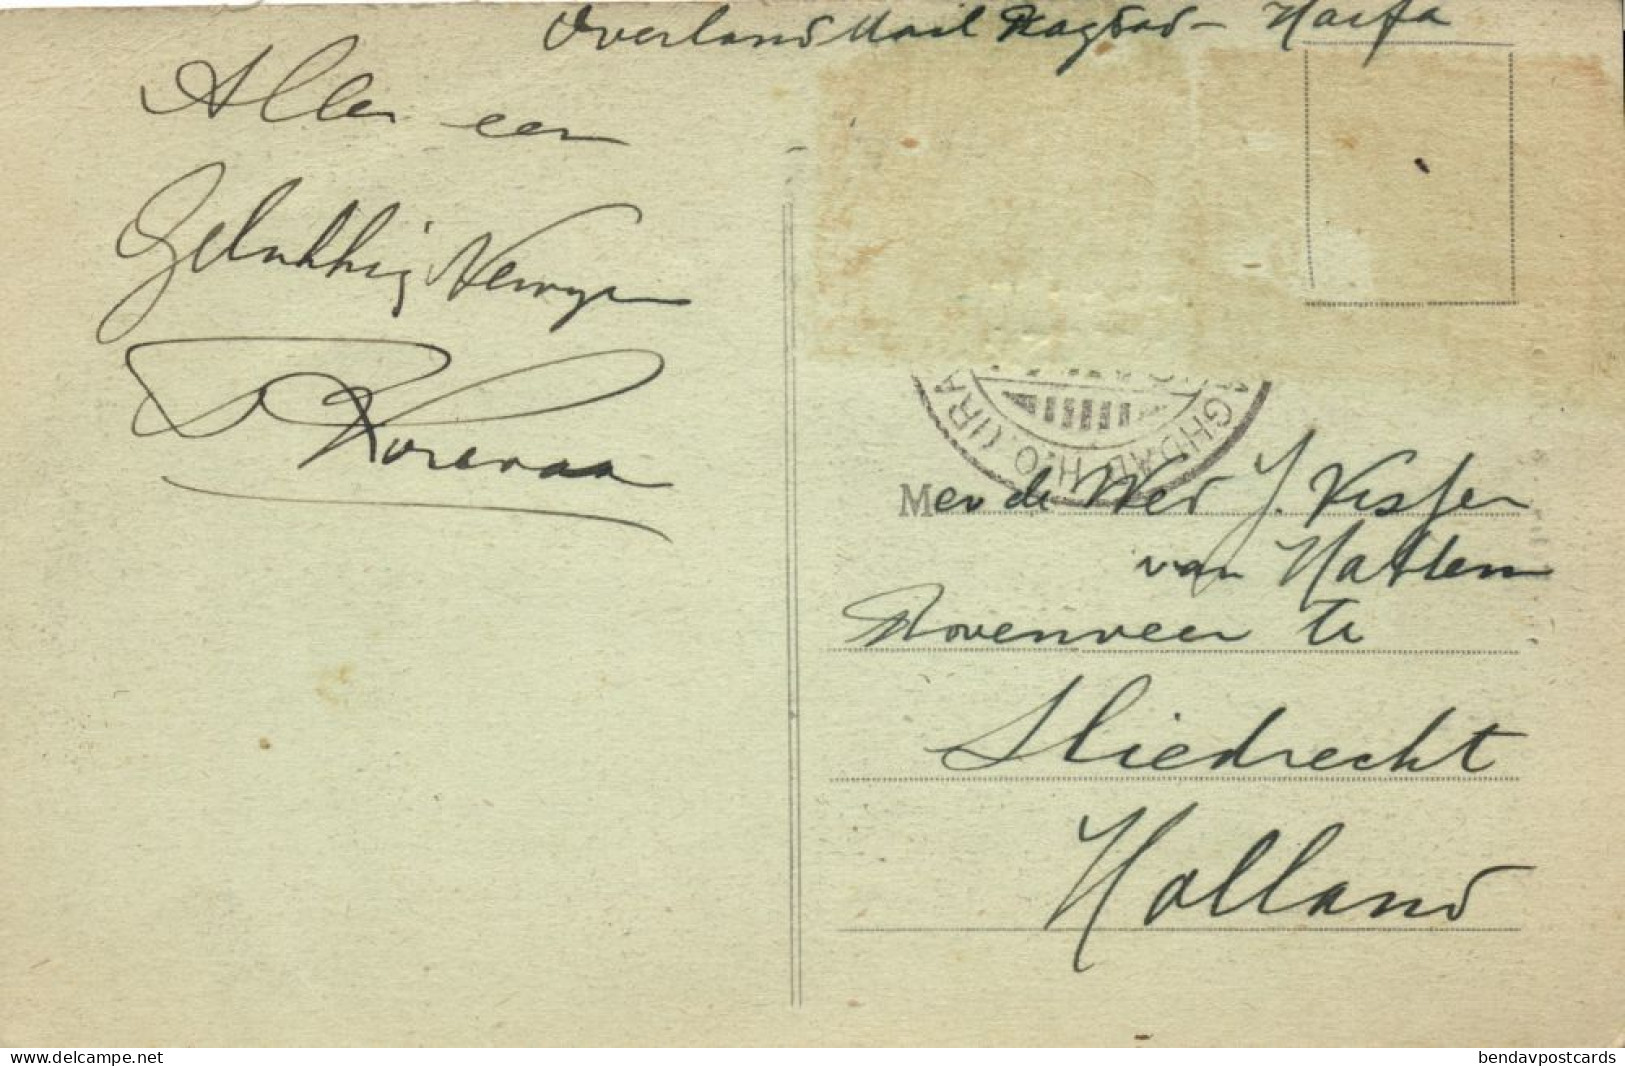 Overland Mail Bagdad - Haifa
Allen een
Gelukkig Nieuwjaar
Korevaar
BAGHDAD H.O. (IRA
Mev de Wed J. Visser
van Hattem
Bovenveer te
Sliedrecht
Holland
www.delcampe.net
bendavpostcards